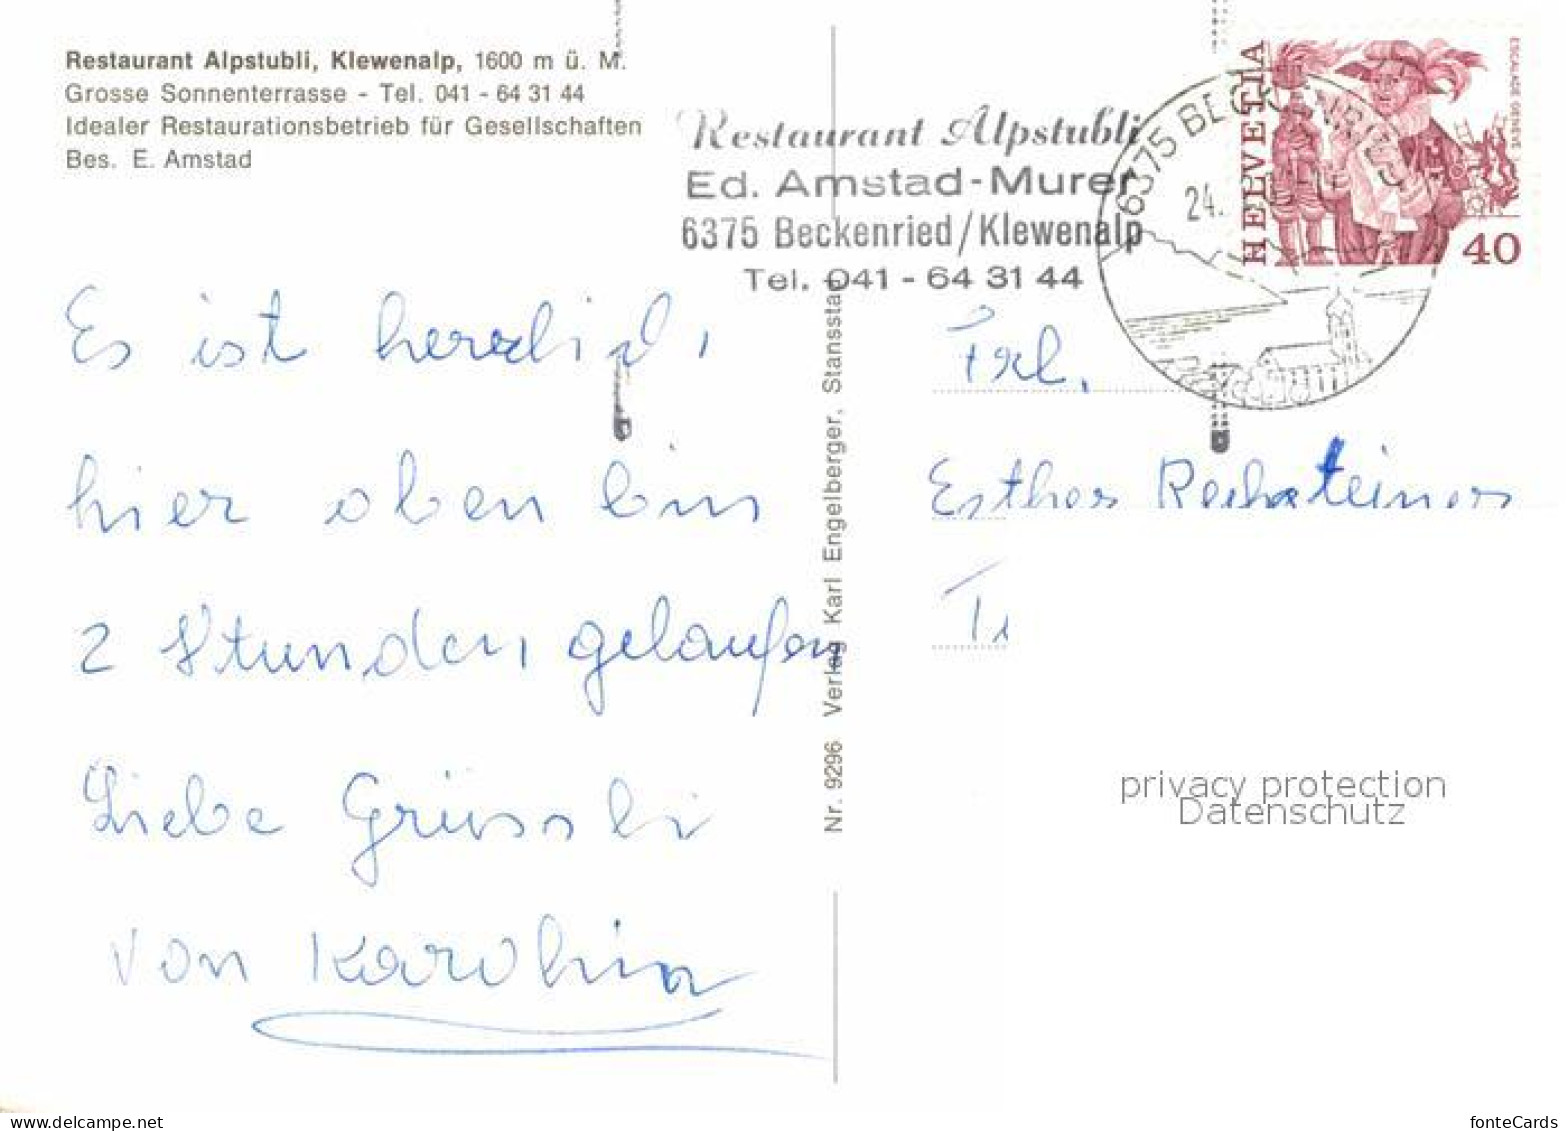 Restaurant Alpstubli, Klewenalp, 1600 m ü. M.
Grosse Sonnenterrasse - Tel. 041 - 64 31 44
Idealer Restaurationsbetrieb für Gesellschaften
Bes. E. Amstad
Restaurant Alpstubli
Ed. Amstad-Murer
6375 Beckenried/Klewenalp
Tel. 041 - 64 31 44
6375 BECKENRIED
24.
HELVETIA
ESCALADE GENÈVE
40
Es ist herrlich,
hier oben bin
2 Stunden gelaufen
Liebe Grüssli
von Karolina
Nr. 9296 Verlag Karl Engelberger, Stansstad
Frl.
Esther Rechsteiner
privacy protection
Datenschutz
fonteCards